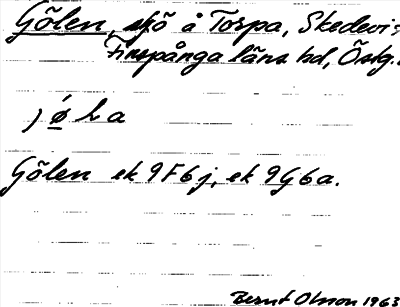 Gölen, sjö å Torpa, Skedevi s
Finspånga läns hd, Östg.
jø̲ la
Gölen ek 9F6j, ek 9G6a.
Bernt Olsson 1963